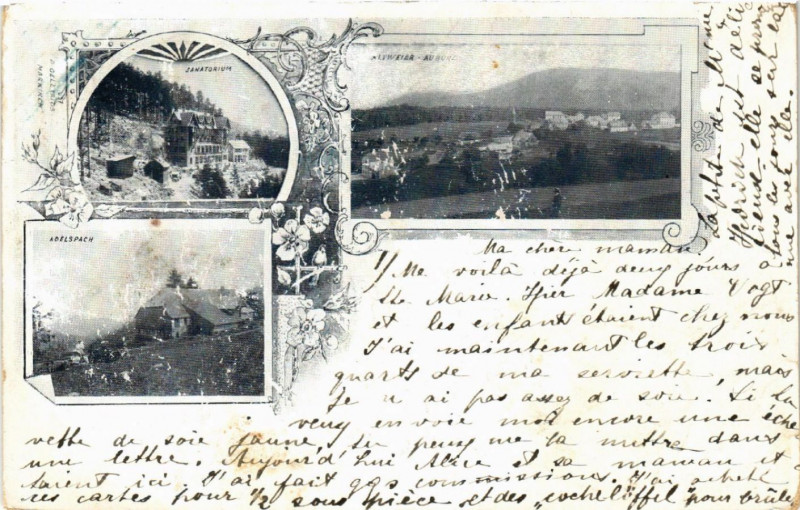 SANATORIUM
ALTWEIER - AUBURE
ADELSPACH
Ma chère maman.
1/ Me voilà déjà deux jours a
Ste Marie. Hier Madame Vogt
et les enfant étaient chez nous
J'ai maintenant les trois
quarts de ma serviette, mais
Je n ai pas assez de soie. Si tu
veux en voie moi encore une éche
vette de soie jaune, tu peux me la mettre dans
une lettre. Aujourd'hui Alice et sa maman et
taient ici. J'ai fait qqs commissions. J'ai acheté
ces cartes pour 1/2 sous pièce et des "cochelöffel" pour brûle
La petite de Mme
Hedrich est de la
elle se pro
tous les jours sur la
me avec elle.